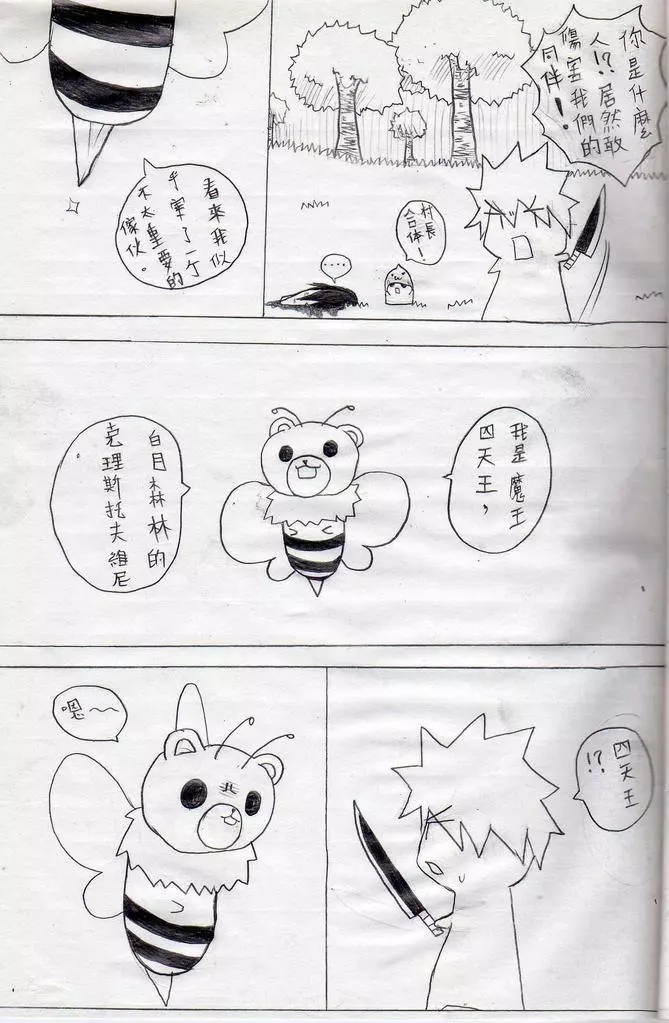 你是什麼
人!?居然敢
傷害我們的
同伴!
村長
合体!
....
看來我似
乎宰了一个
不太重要的
傢伙。
我是魔王
四天王,
白目森林的
克理斯托夫維尼
。
四天王
!?
嗯~~